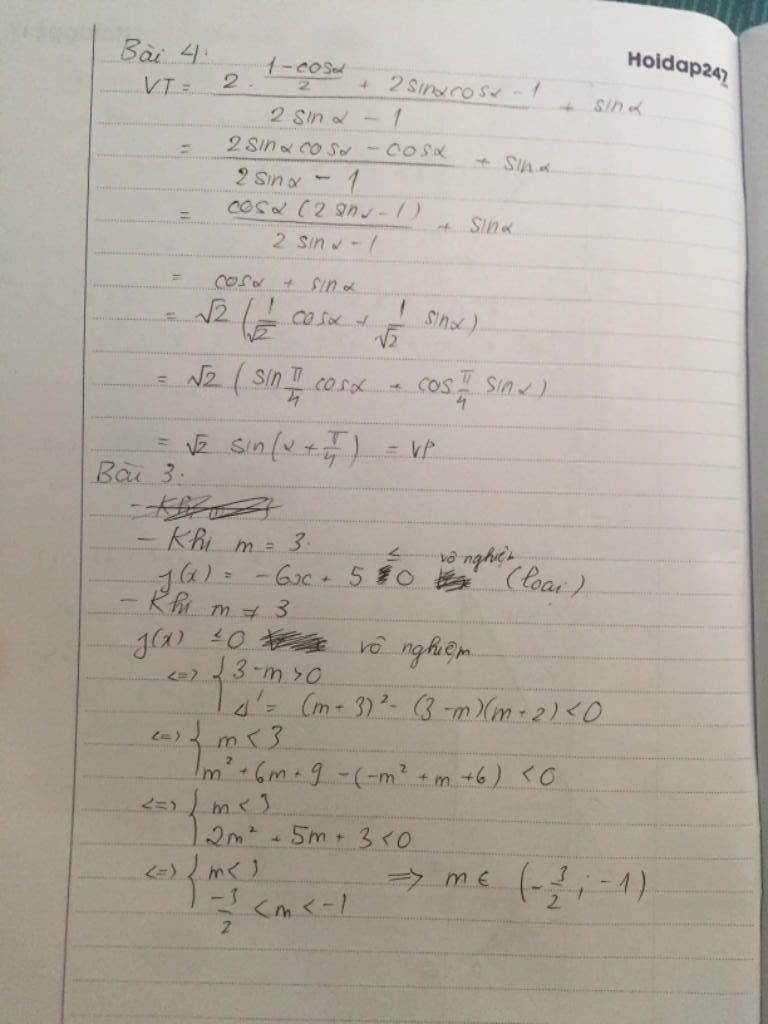 Hoidap247
Bài 4:
VT = \frac{2 \cdot \frac{1-cosα}{2} + 2sinαcosα - 1}{2sinα - 1} + sinα
= \frac{2sinαcosα - cosα}{2sinα - 1} + sinα
= \frac{cosα(2sinα - 1)}{2sinα - 1} + sinα
= cosα + sinα
= √2 (\frac{1}{√2} cosα + \frac{1}{√2} sinα)
= √2 (sin\frac{π}{4} cosα + cos\frac{π}{4} sinα)
= √2 sin(α + \frac{π}{4}) = VP
Bài 3:
- Khi m = 3.
g(x) = -6x + 5 ≤ 0 vô nghiệm (loại)
- Khi m ≠ 3
g(x) ≤ 0 vô nghiệm
<=> { 3-m > 0
Δ' = (m+3)² - (3-m)(m+2) < 0
<=> { m < 3
m² + 6m + 9 - (-m² + m + 6) < 0
<=> { m < 3
2m² + 5m + 3 < 0
<=> { m < 3 => m ∈ (-\frac{3}{2}; -1)
\frac{-3}{2} < m < -1